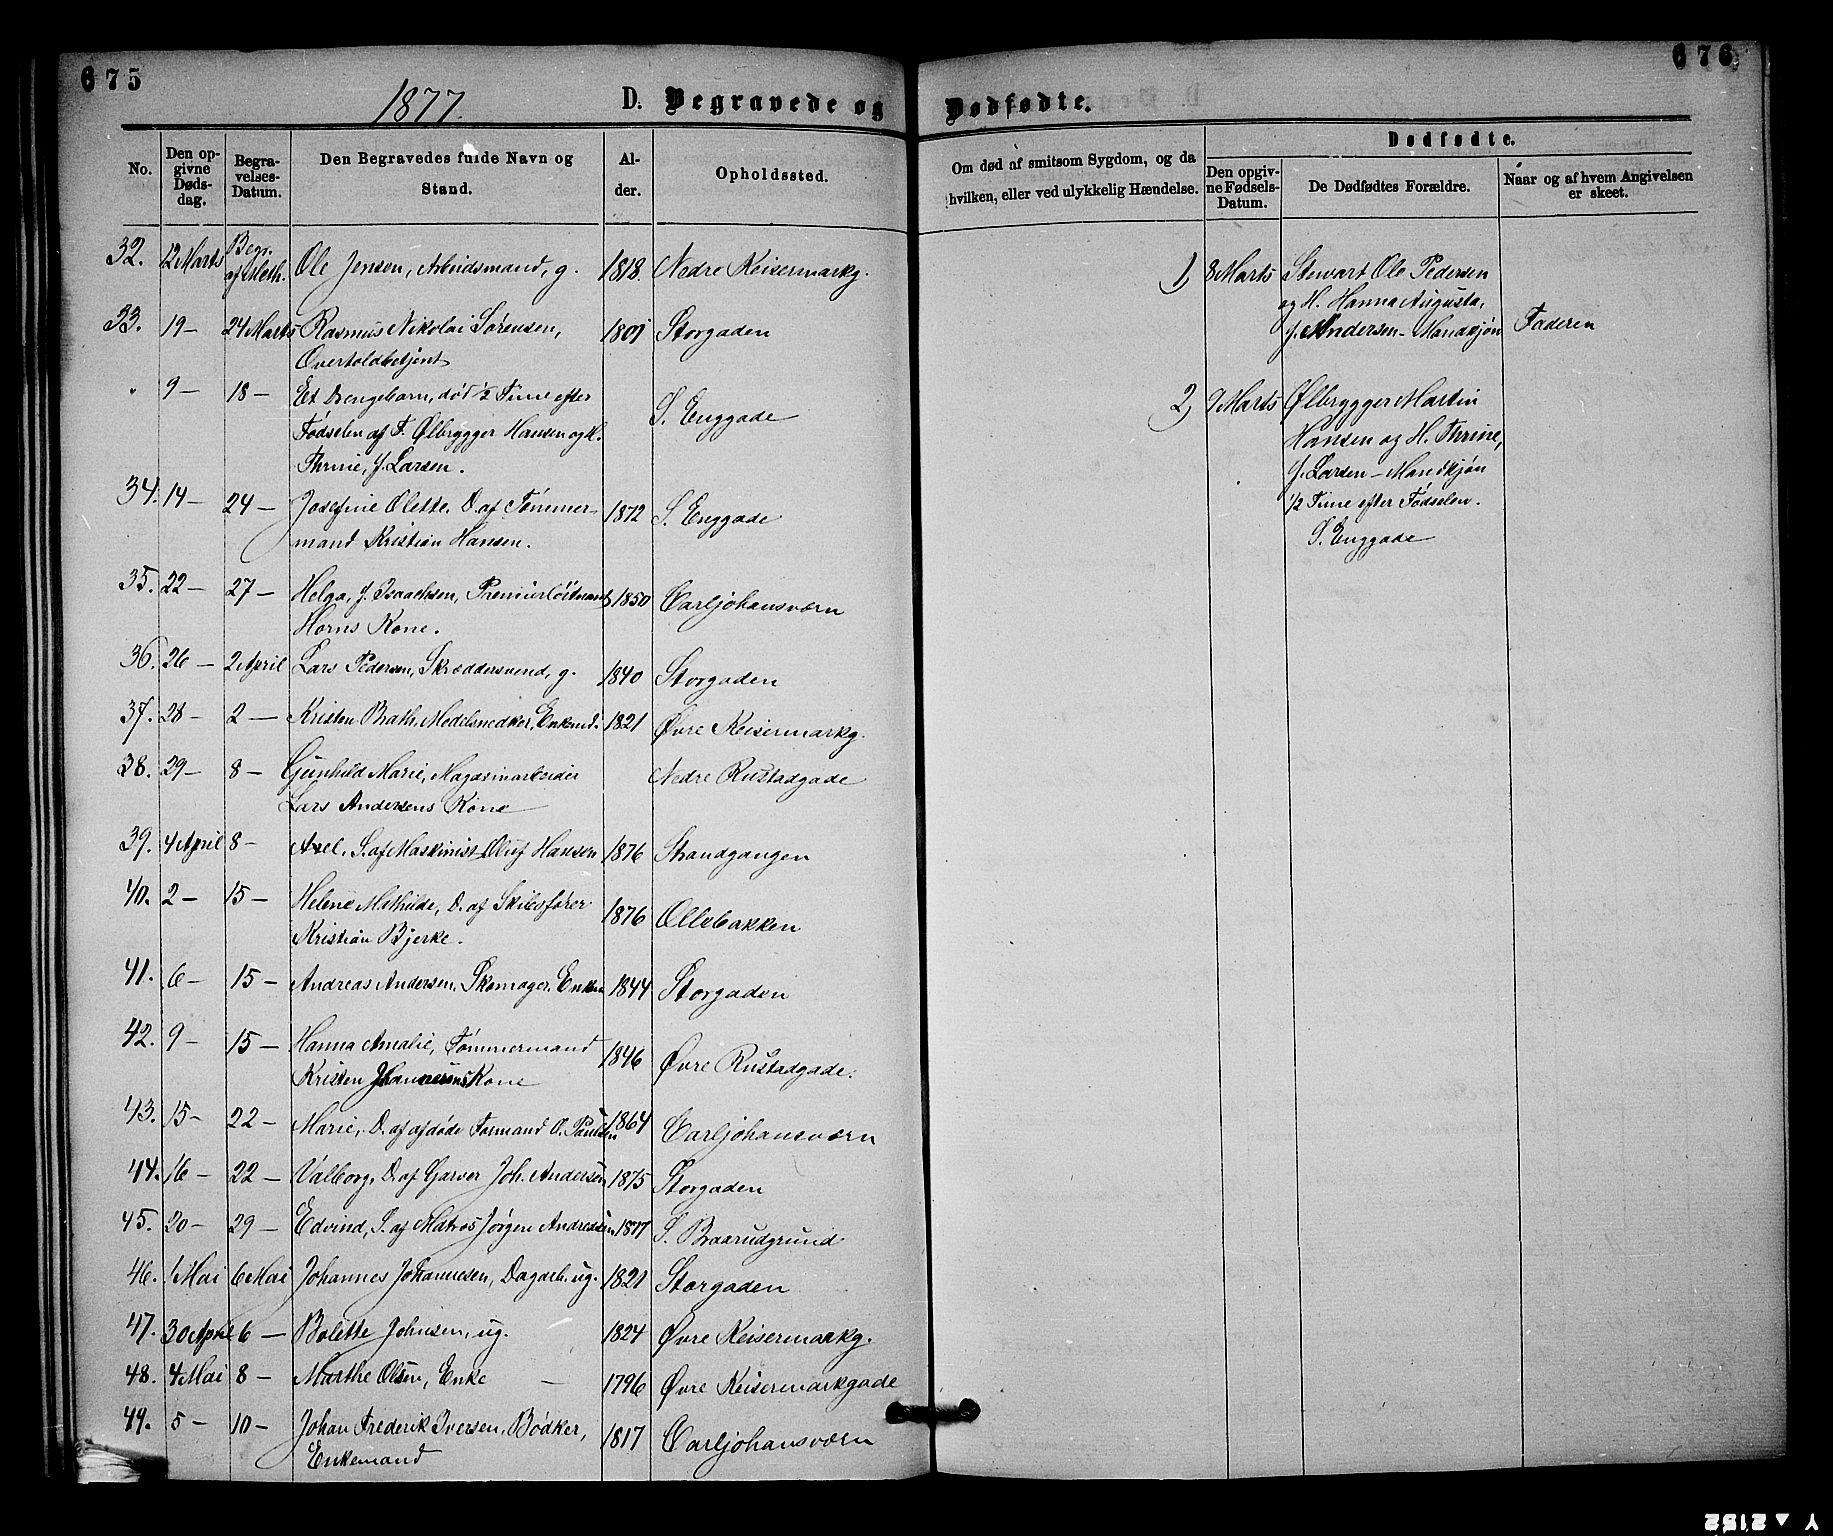 675
1877.
D. Begravede og
No.
Den op-
givne
Døds-
dag.
Begra-
velses-
Datum.
Den Begravedes fulde Navn og
Stand.
Al-
der.
Opholdssted.
32. 12 Marts Begr. af Meth. Ole Jensen, Arbeidsmand, g. 1818. Nedre Keisermarkg.
33. 19 – 24 Marts Rasmus Nikolai Sørensen, 1801 Storgaden
Overtoldbetjent
" 9 – 18 – Et Drengebarn, død 1/2 Time efter
Fødselen af F. Ølbrygger Hansen og H. S. Enggade
Thrine, f. Larsen.
34. 14 – 24 – Josefine Olette, D. af Tømmer- 1872 S. Enggade
mand Kristian Hansen.
35. 22 – 27 – Helga, f. Isaachsen, Premierløitnant 1850 Carljohansværn
Horns Kone.
36. 26 – 2 April Lars Pedersen, Skræddersvend, g. 1840 Storgaden
37. 28 – 2 – Kristen Brath, Modelsnedker, Enkemd. 1821 Øvre Keisermarkg.
38. 29 – 8 – Gunhild Marie, Magasinarbeider Nedre Rustadgade
Lars Andersens Kone
39. 4 April 8 – Axel, S. af Maskinist Oluf Hansen 1876 Strandgangen
40. 2 – 15 – Helene Mathilde, D. af Skibsfører 1876 Ollebakken
Kristian Bjerke.
41. 6 – 15 – Andreas Andersen, Skomager, Enkem 1844 Storgaden
42. 9 – 15 – Hanna Amalie, Tømmermand 1846 Øvre Rustadgade.
Kristen Johannesens Kone
43. 15 – 22 – Marie, D. af afdøde Formand O. Paulsen 1864 Carljohansværn
44. 16 – 22 – Valborg, D. af Garver Joh. Andersen 1875 Storgaden
45. 20 – 29 – Edvind, S. af Matros Jørgen Andreassen 1877 S. Braarudgrund
46. 1 Mai 6 Mai Johannes Johannesen, Dagarb. ug. 1821 Storgaden
47. 30 April 6 – Bolette Johnsen, ug. 1824 Øvre Keisermarkg.
48. 4 Mai 8 – Marthe Olsen, Enke – 1796 Øvre Keisermarkgade
49. 5 – 10 – Johan Frederik Iversen, Bødker, 1817 Carljohansværn
Enkemand
676
Dødfødte.
Om død af smitsom Sygdom, og da
hvilken, eller ved ulykkelig Hændelse.
Dødfødte.
Den opgiv-
ne Fødsels-
Datum.
De Dødfødtes Forældre.
Naar og af hvem Angivelsen
er skeet.
1) 8 Marts Stewart Ole Pedersen
og H. Hanna Augusta,
f. Andersen – Mandkjøn Faderen
2) 9 Marts Ølbrygger Martin
Hansen og H. Thrine,
f. Larsen – Mandkjøn
1/2 Time efter Fødselen.
S. Enggade
2152